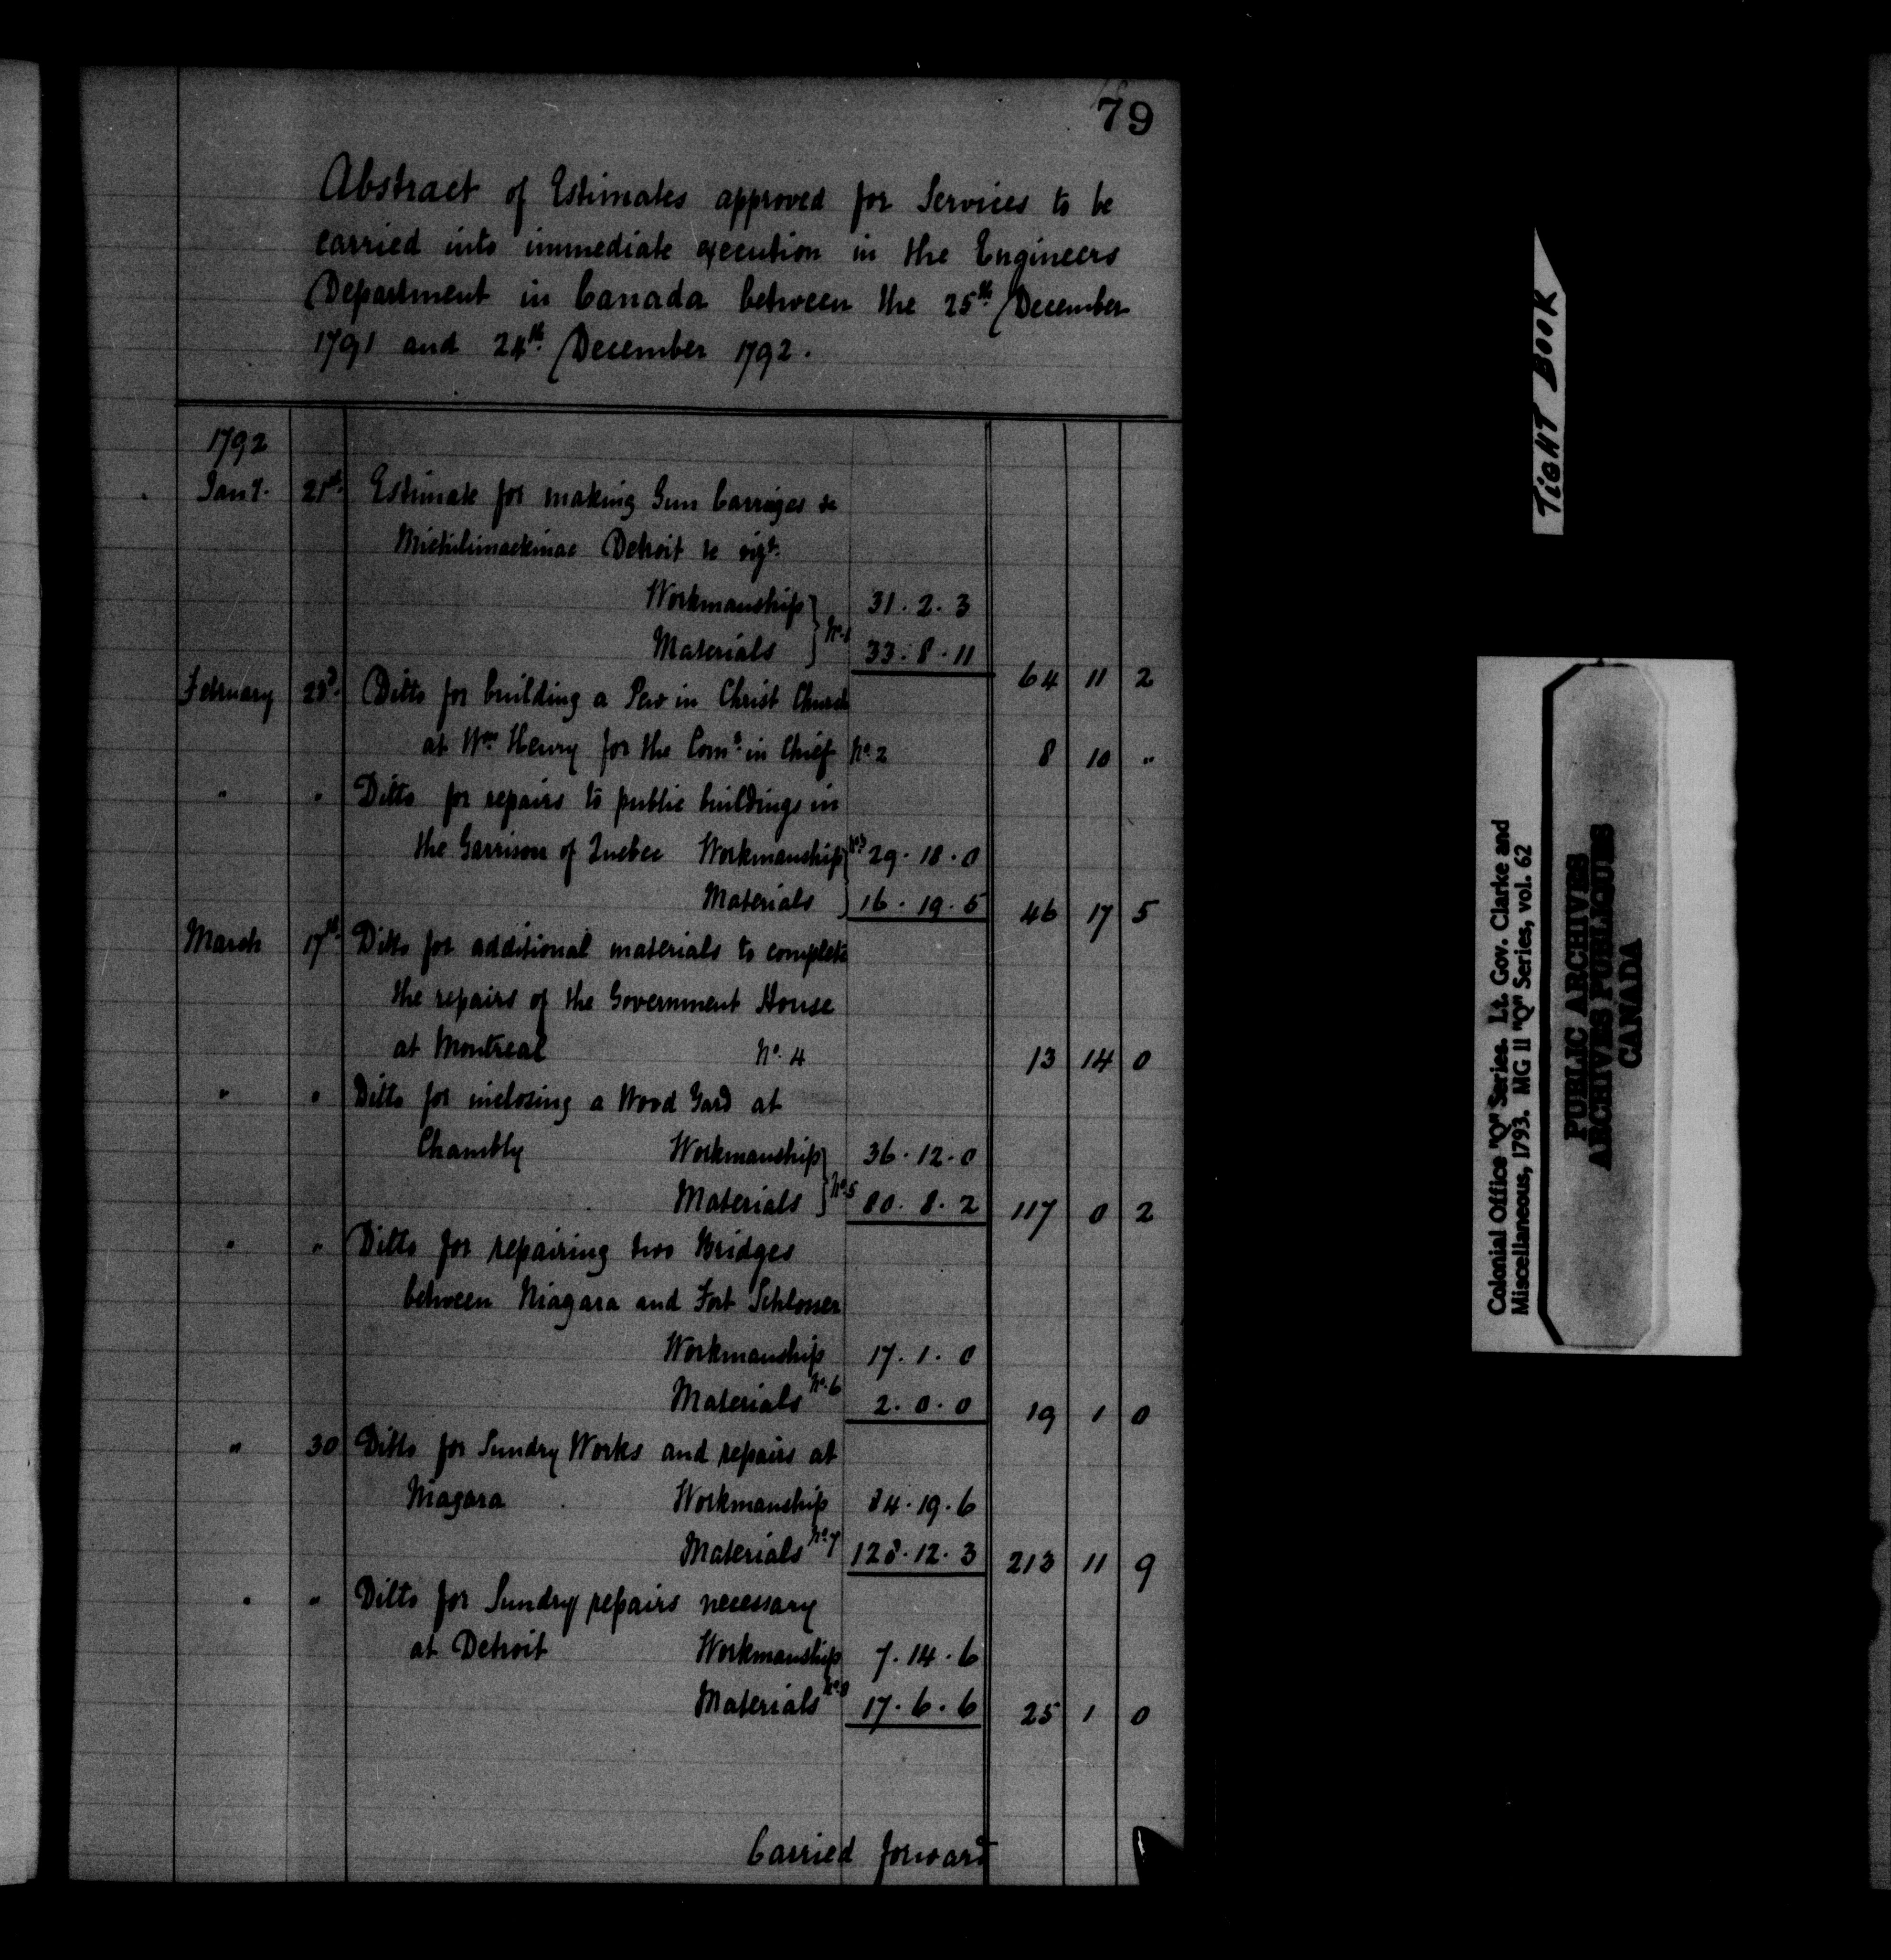 79
Abstract of Estimates approved for Services to be
carried into immediate execution in the Engineers
Department in Canada between the 25th December
1791 and 24th December 1792.
1792
Jany. 21st. Estimate for making Gun Carriages &c
Michilimackinac Detroit &c vizt.
Workmanship } 31. 2. 3
Materials } No. 1 33. 8. 11 64 11 2
February 23d. Ditto for building a Pew in Christ Church
at Wm Henry for the Comr. in Chief No. 2 8 10 "
" " Ditto for repairs to public buildings in
the Garrison of Quebec Workmanship } No. 3 29. 18. 0
Materials } 16. 19. 5 46 17 5
March 17th. Ditto for additional materials to complete
the repairs of the Government House
at Montreal No. 4 13 14 0
" " Ditto for inclosing a Wood Yard at
Chambly Workmanship } 36. 12. 0
Materials } No. 5 80. 8. 2 117 0 2
" " Ditto for repairing two Bridges
between Niagara and Fort Schlosser
Workmanship 17. 1. 0
Materials No. 6 2. 0. 0 19 1 0
" 30 Ditto for Sundry Works and repairs at
Niagara Workmanship 84. 19. 6
Materials No. 7 128. 12. 3 213 11 9
" " Ditto for Sundry repairs necessary
at Detroit Workmanship 7. 14. 6
Materials No. 8 17. 6. 6 25 1 0
Carried forward
TIGHT BOOK
Colonial Office "Q" Series. Lt. Gov. Clarke and
Miscellaneous, 1793. MG 11 "Q" Series, vol. 62
PUBLIC ARCHIVES
ARCHIVES PUBLIQUES
CANADA